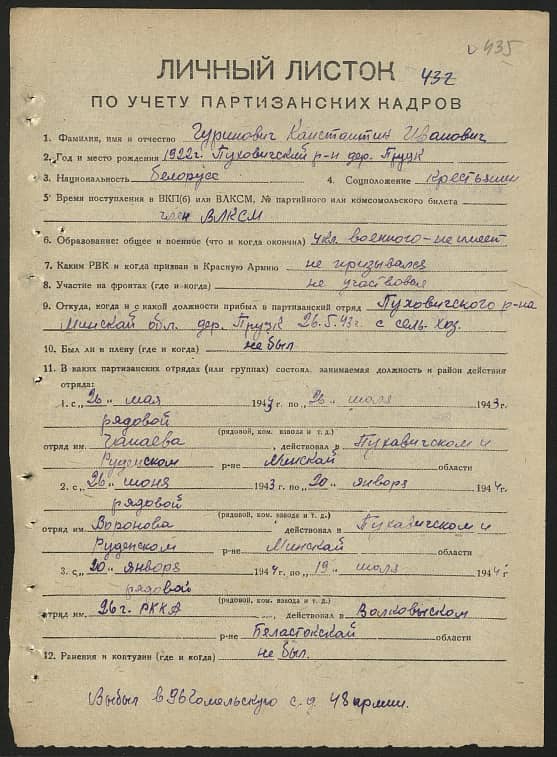 435
ЛИЧНЫЙ ЛИСТОК 432
ПО УЧЕТУ ПАРТИЗАНСКИХ КАДРОВ
1. Фамилия, имя и отчество Гуринович Канстантин Иванович
2. Год и место рождения 1922г. Пуховичский р-н дер. Пруцк
3. Национальность белорусс 4. Соцположение крестьянин
5 Время поступления в ВКП(б) или ВЛКСМ, № партийного или комсомольского билета
член ВЛКСМ
6. Образование: общее и военное (что и когда окончил) 4кл. военного-не имеет
7. Каким РВК и когда призван в Красную Армию не призывался
8. Участие на фронтах (где и когда) не участвовал
9. Откуда, когда и с какой должности прибыл в партизанский отряд Пуховичского р-на
Минскай обл. дер. Пруцк 26.5.43г. с сель. хоз.
10. Был ли в плену (где и когда) не был
11. В каких партизанских отрядах (или группах) состоял, занимаемая должность и район действия
отряда:
1. с „26„ мая 1943 г. по „26„ июля 1943г.
рядовой
(рядовой, ком. взвода и т. д.)
отряд им. Чапаева , действовал в Пухавичском и
Руденском р-не Минскай области
2. с „26„ июня 1943 г. по „20„ января 1944г.
рядовой
(рядовой, ком. взвода и т. д.)
отряд им. Воронова , действовал в Пухавичском и
Руденском р-не Минскай области
3. с „20„ января 1944 г. по „19„ июля 1944г
рядовой
(рядовой, ком. взвода и т. д.)
отряд им. 26 г. РККА , действовал в Волковыском
р-не Беластокской области
12. Ранения и контузии (где и когда) не был.
Выбыл в 96 Гомельскую с. д. 48 армии.